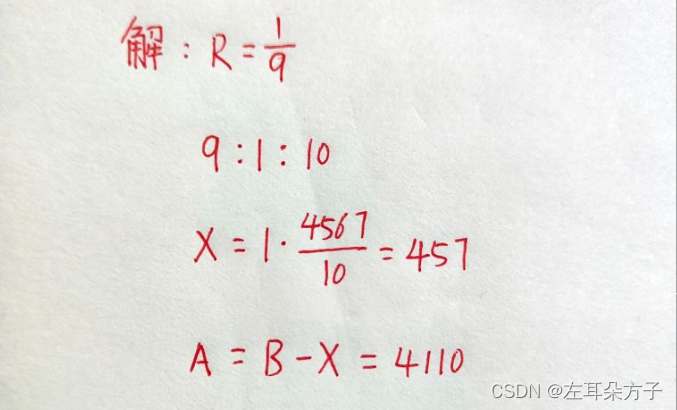 解：R = 1/9
9 : 1 : 10
X = 1 · 4567/10 = 457
A = B - X = 4110
CSDN @左耳朵方子